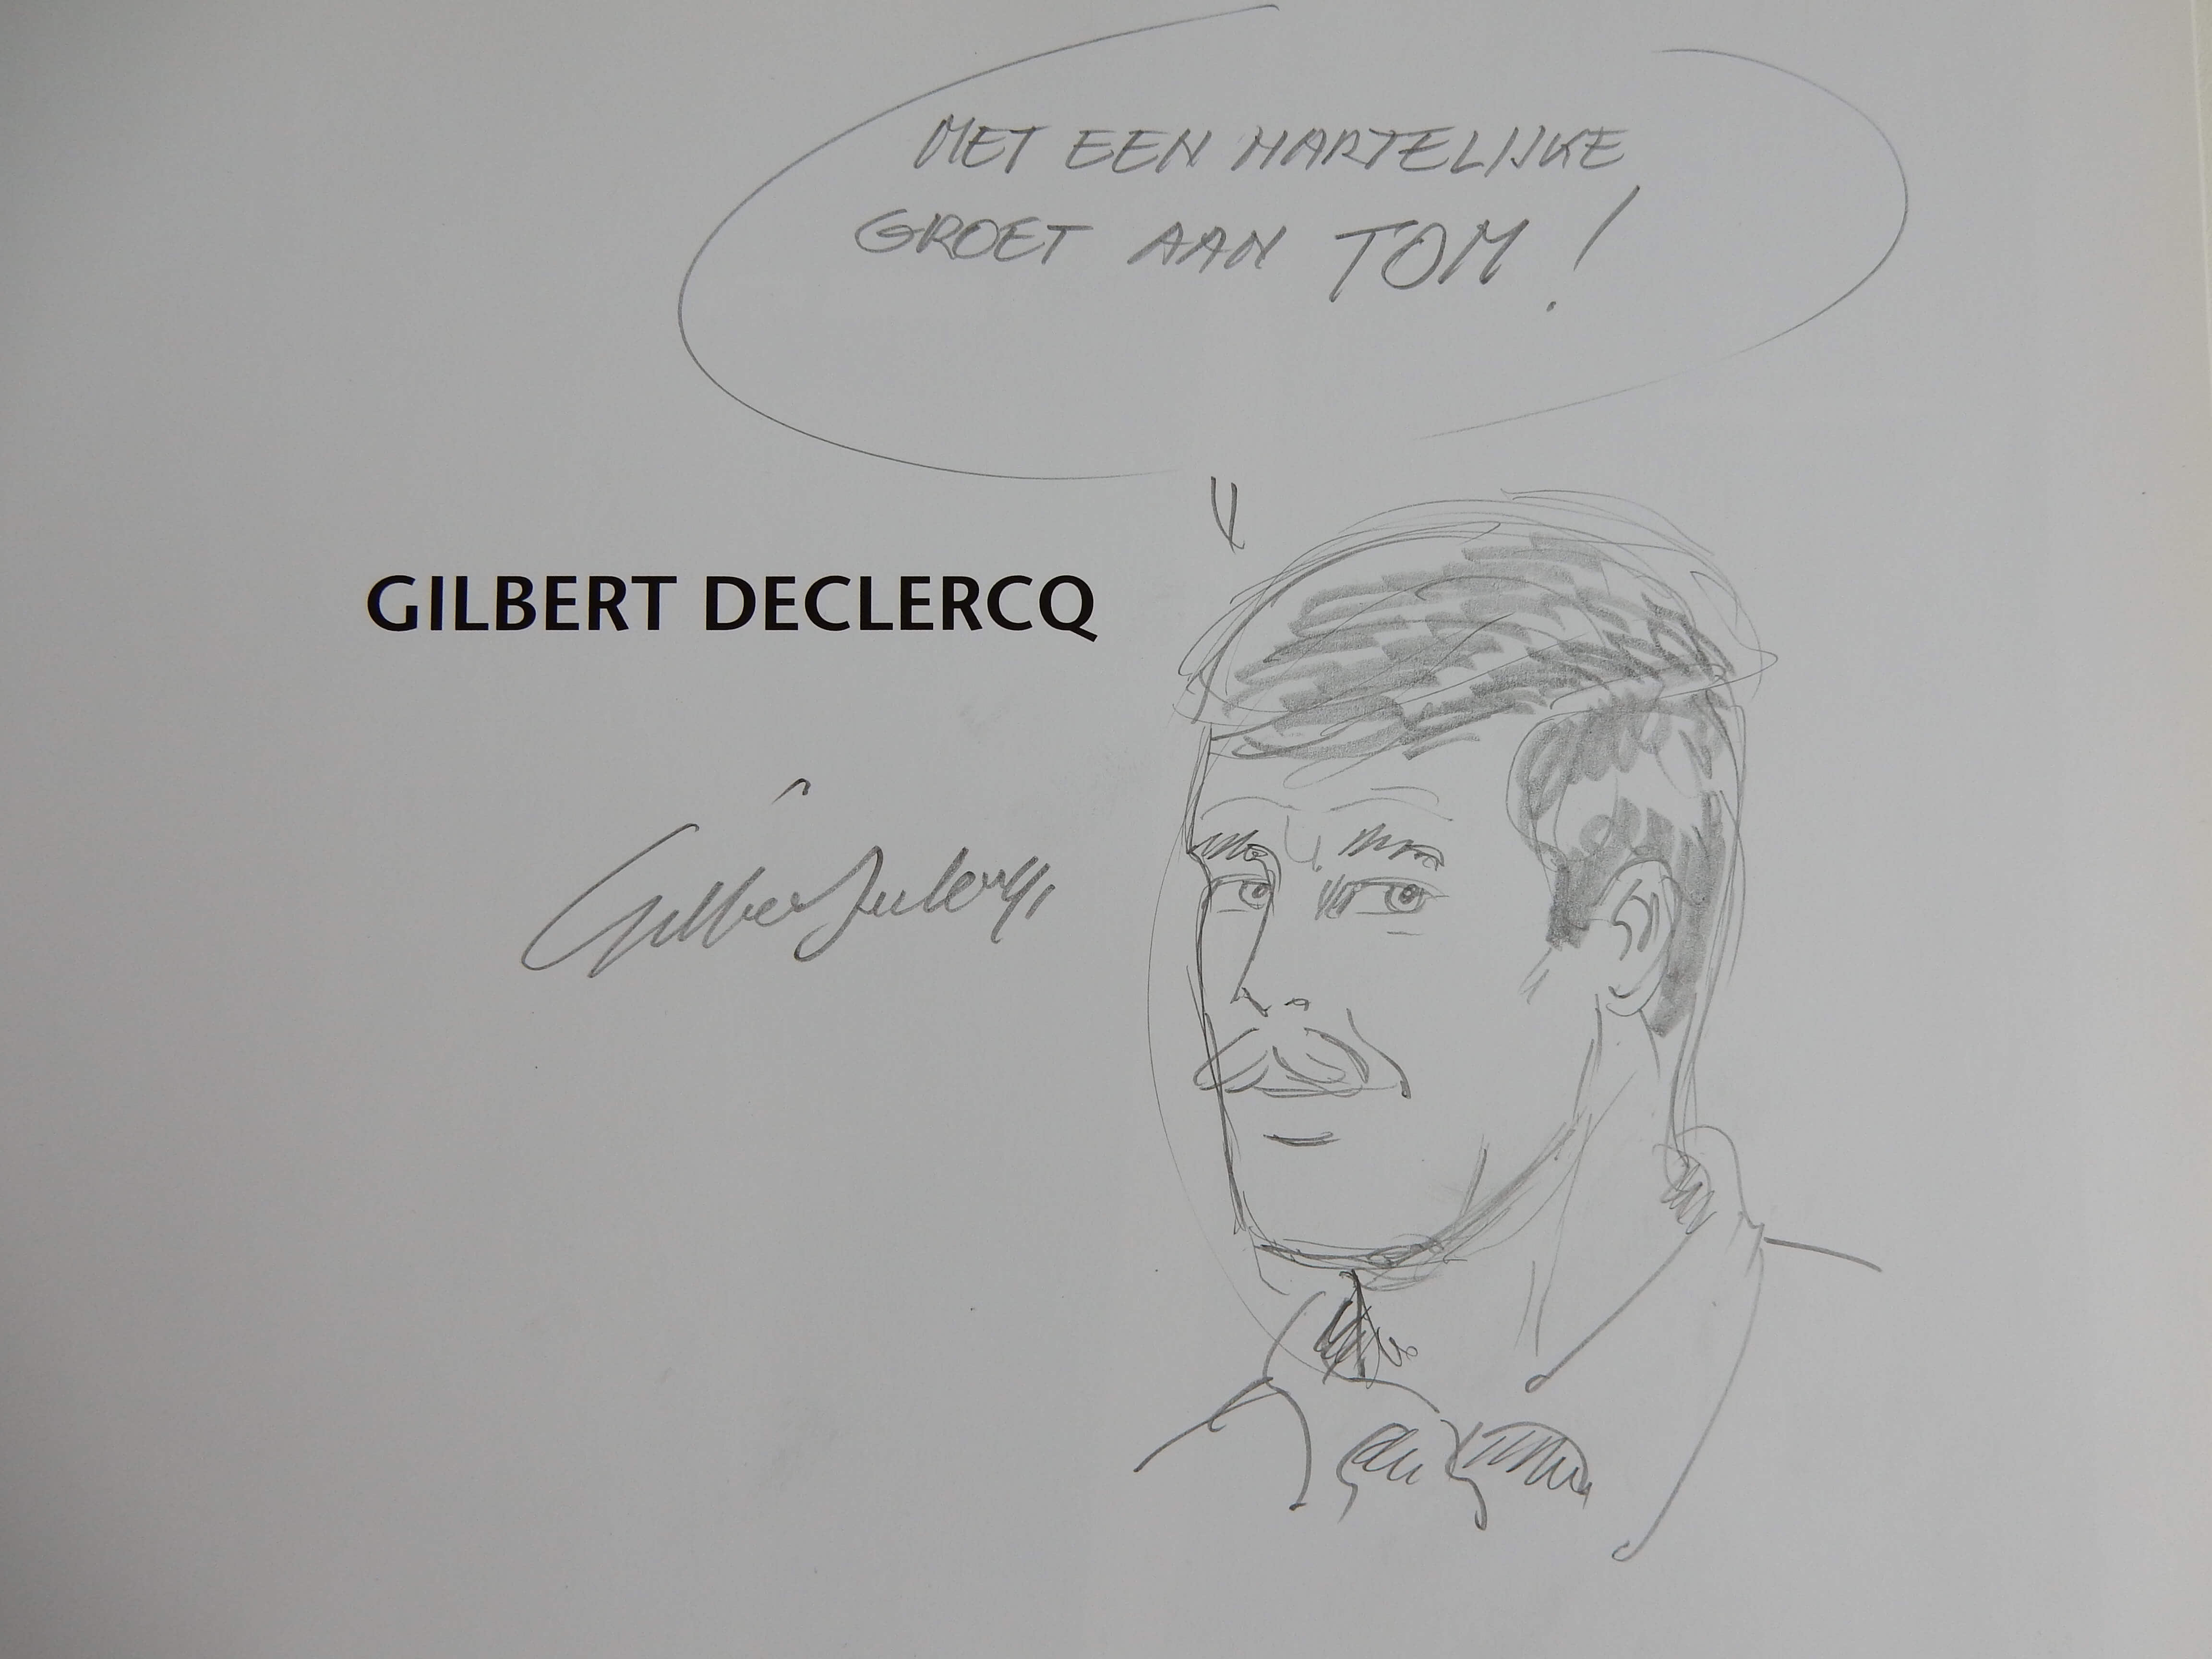 MET EEN HARTELIJKE
GROET AAN TOM!
GILBERT DECLERCQ
Gilbert Declercq